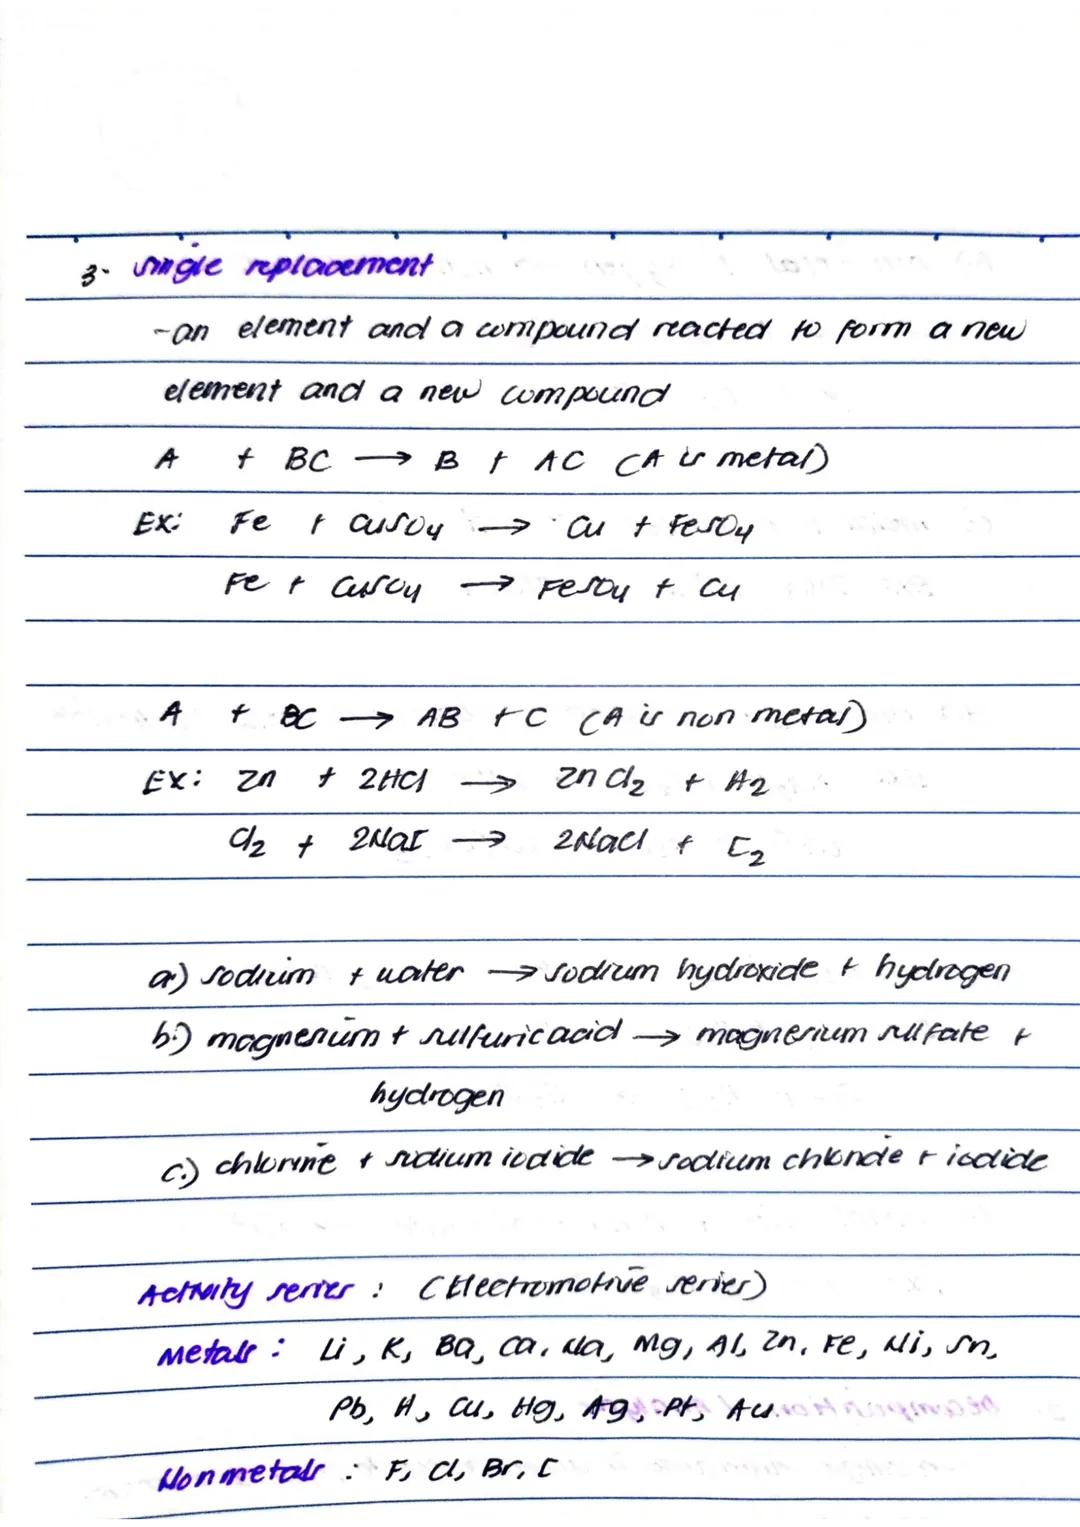 3. single replacement
- an element and a compound reacted to form a new
element and a new compound
A + BC → B + AC (A is metal)
Ex: Fe + CuSO4 → Cu + FeSO4
Fe + CuSO4 → FeSO4 + Cu
A + BC → AB + C (A is non metal)
Ex: Zn + 2HCl → ZnCl2 + H2
Cl2 + 2NaI → 2NaCl + I2
a.) sodium + water → sodium hydroxide + hydrogen
b.) magnesium + sulfuric acid → magnesium sulfate +
hydrogen
c.) chlorine + sodium iodide → sodium chloride + iodide
Activity series : (Electromotive series)
Metals : Li, K, Ba, Ca, Na, Mg, Al, Zn, Fe, Ni, Sn,
Pb, H, Cu, Hg, Ag, Pt, Au.
Nonmetals : F, Cl, Br, I